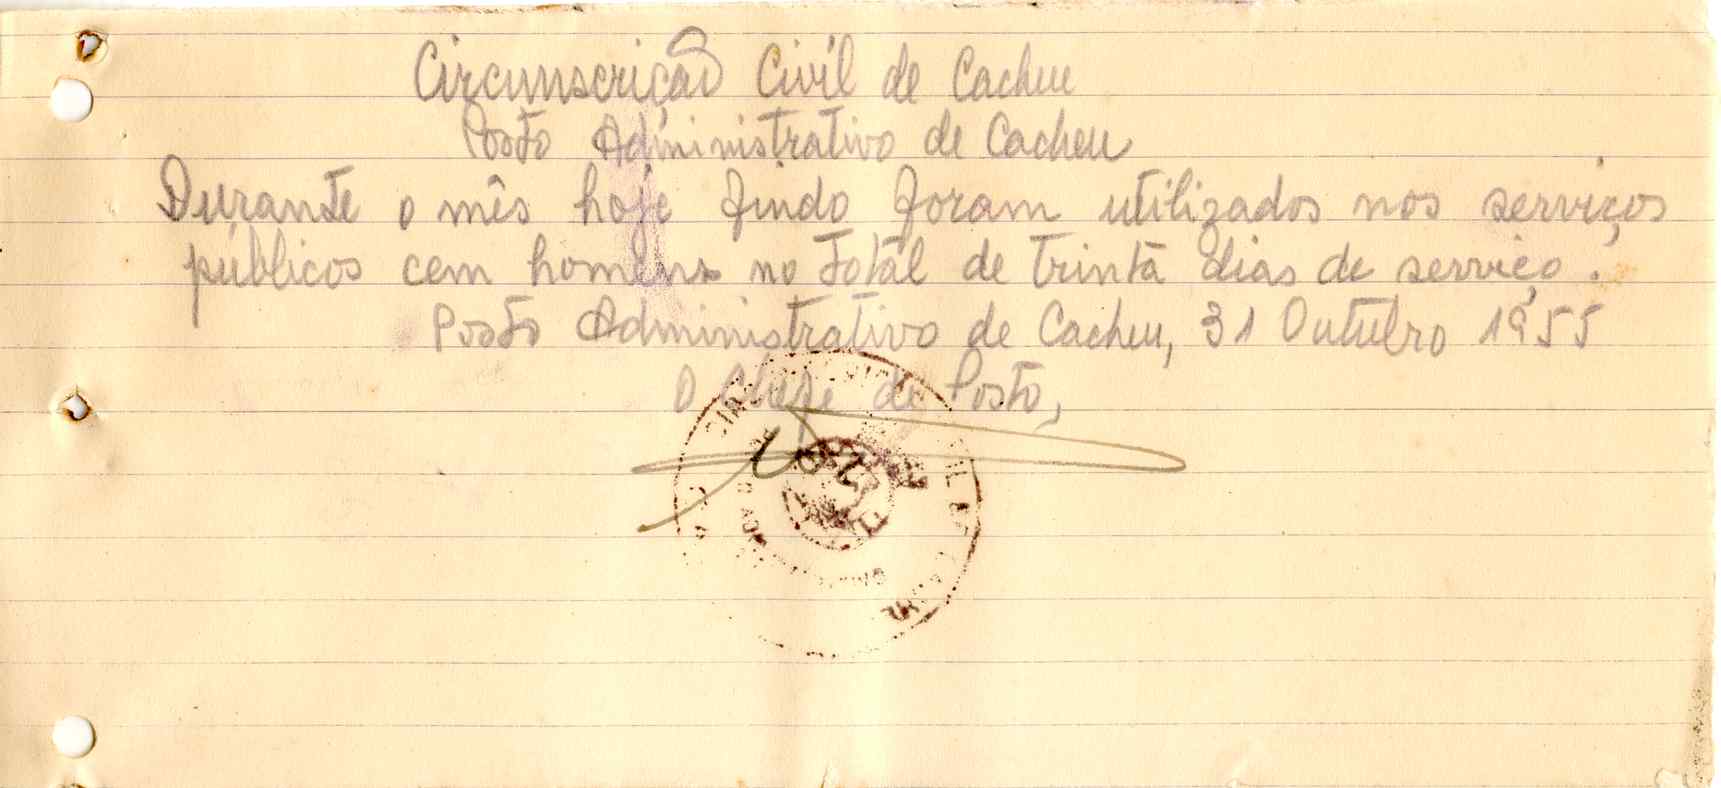 Circunscrição Civil de Cacheu
Posto Administrativo de Cacheu
Durante o mês hoje findo foram utilizados nos serviços
públicos cem homens no total de trinta dias de serviço.
Posto Administrativo de Cacheu, 31 Outubro 1955
O Chefe do Posto,